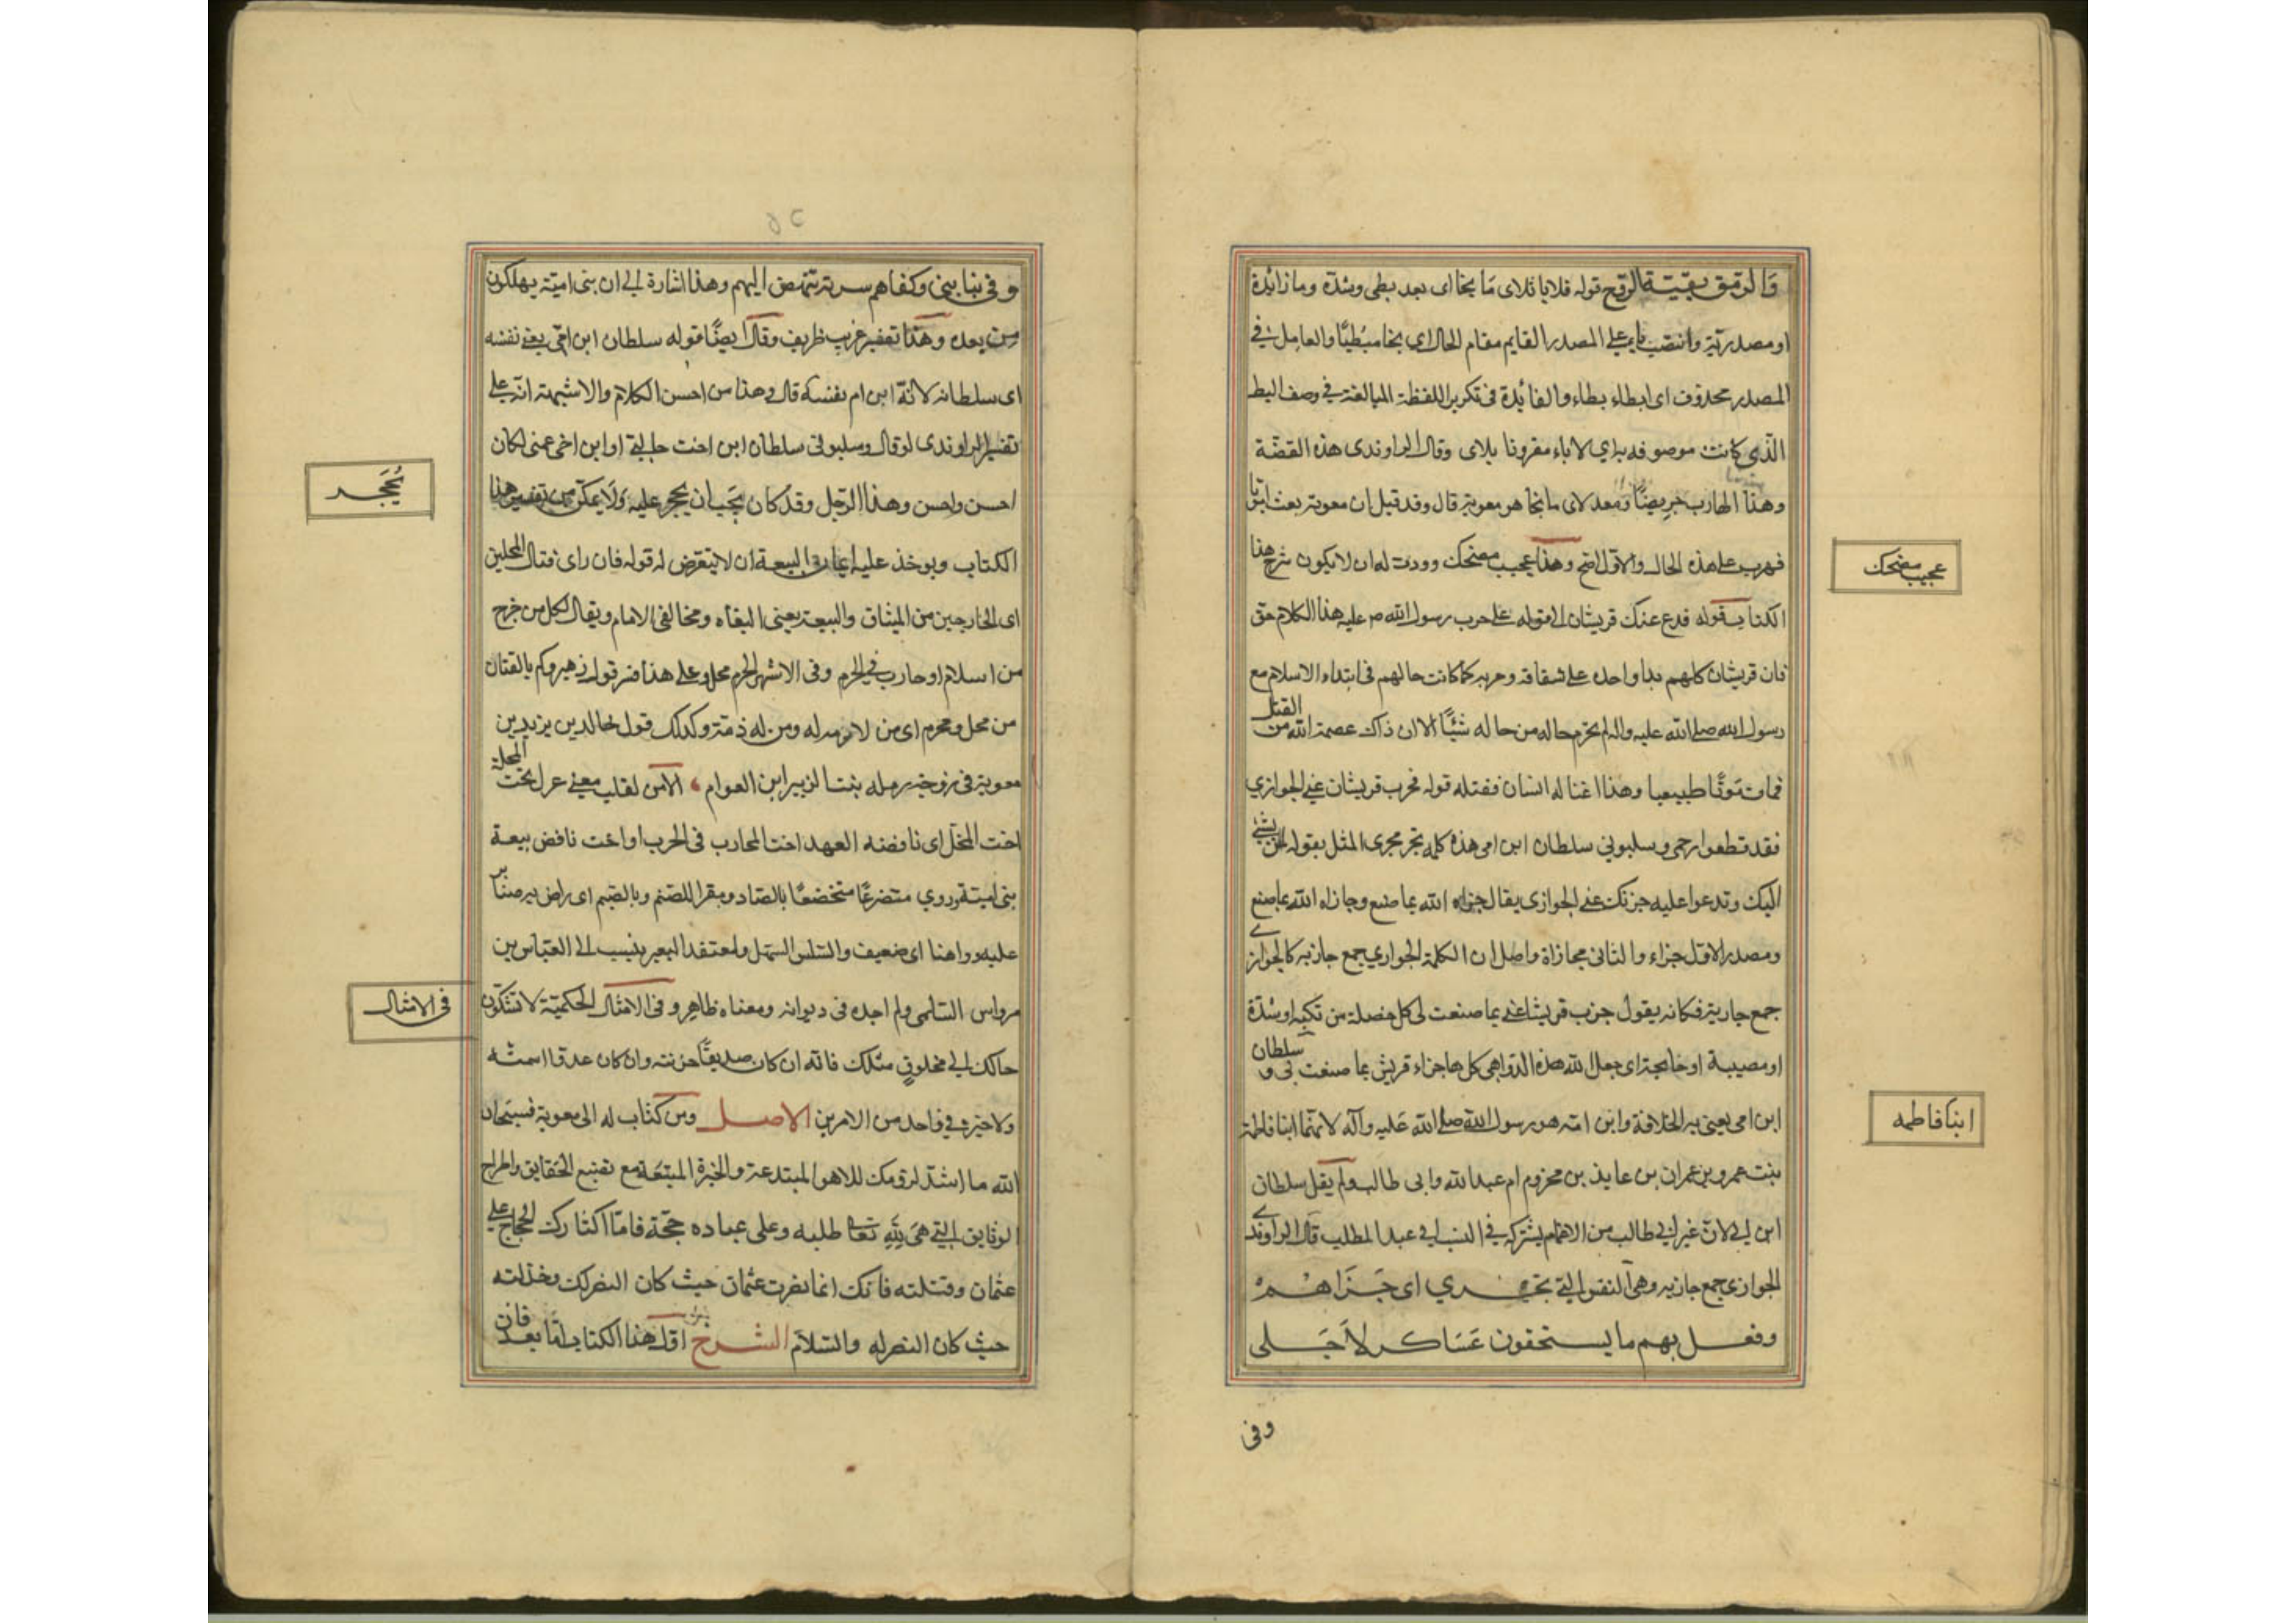 والرمق بقية الروح قوله فلايا ثلاى ما بخا اى بعد بطى وشدة وما زائدة
او مصدرية وانتصب لايا على المصدر القايم مقام الحال اى بخا مبطيًا والعامل فى
المصدر محذوف اى ابطاء بطاء والفائدة فى تكرير اللفظة المبالغة فى وصف البطا
الّذى كانت موصوفه به اى لاياء مقرونا بلاى وقال الراوندى هذه القصّة
وهذا الهارب جريضًا وبعد لاى ما بخا هو معوية قال وقد قيل ان معوية بعث
فهرب على هذه الحال والاوّل اصح وهذا عجيب مضحك ووددت له ان لا يكون شرح هذا
عجيب مضحك
الكتاب قوله فدع عنك قريشان الى قوله على حرب رسول الله ص عليه هذا الكلام حق
فان قريشان كلهم يدا واحده على شقاقه وحربه كما كانت حالهم فى ابتداء الاسلام مع
رسول الله صلى الله عليه واله لم يخرم حاله من حاله شئيًا الا ان ذاك عصمه الله من القتل
فمات موتًا طبيعيا وهذا اغتاله انسان فقتله قوله فجزب قريشان عنى الجوازي
فقد قطعوا رحمى وسلبونى سلطان ابن امى هذه كلمه تجر مجرى المثل يقوله لمن يسئ
اليك وتدعوا عليه جزتك عنى الجوازى يقال جزاه الله بما صنع وجازاه الله بما صنع
ومصدر الاوّل جزاء والثانى مجازاة واصل ان الكلمة الجوازي جمع جازيه كالجوازى
جمع جارية فكانه يقول جزب قريشا عنى بما صنعت لى كل خصلة من نكبه او شدّة
او مصيبة او جايحة اى جعل الله هذه الدواهى كل ها جزاء قريش بما صنعت بى و سلطان
ابن امى يعنى به الخلافة وابن امّه هو رسول الله صلى الله عليه وآله لانهما ابنا فاطمة
ابنا فاطمه
بنت عمرو بن عمران بن عايذ بن مخزوم ام عبد الله وابى طالب ولم يقل سلطان
ابن ابى لان غير ابى طالب من الاعمام يشركه فى النسب الى عبد المطلب قال الراوندى
الجوازى جمع جازيه وهى النفس التى تجزي اى جَزَاهم
وفعل بهم ما يستحقون عَسَاكر لاَجَلى
وفى
وفى نيابتى وكفاهم سرية تنهض اليهم وهذا اشارة الى ان بنى اميّة يهلكون
من بعده وهذا تفسير غريب ظريف وقال ايضًا قوله سلطان ابن امّى يعنى نفسه
اى سلطانه لانّه ابن ام نفسه قال وهذا من احسن الكلام ولا شبهة انّه على
تفسير الراوندى لو قال وسلبونى سلطان ابن اخت خالتى او ابن اخى عمى لكان
احسن واحسن وهذا الرّجل وقد كان يجب ان يحجر عليه ولا يمكّن من تفسير هذا
يُحَجر
الكتاب ويوخذ عليه ايمان البيعة ان لا يتعرض له قوله فان راى قتال المحلين
اى الخارجين من الميثاق والبيعة يعنى البغاه ومخالفى الامام ويقال لكل من خرج
من اسلام او حارب فى الحرم وفى الاشهر الحرم محل وعلى هذا فسر قول زهير وكم بالقتان
من محل ومحرم اى من لا ذمه له ومن له ذمّة وكذلك قول خالد بن يزيد بن
معوية فى زوجته رمله بنت الزبير ابن العوام الا من لقلب معنى غزل يحب المحلة
اخت المحل اى ناقضه العهد اخت المحارب فى الحرب او اخت ناقض بيعة
بنى اميّة وروي متضرعًا متخضعًا بالضاد ومقرا للضيم وبالضيم اى راض به صابرا
عليه وواهنا اى ضعيف والسلس السهل ومقتعد البعير ينسب الى العبّاس بن
مرداس السلمى ولم اجده فى ديوانه ومعناه ظاهر وفى الامثال الحكميّة لا تشكون
فى الامثال
حالك الى مخلوقٍ مثلك فانّه ان كان صديقًا حزنته وان كان عدوّا اشمته
ولا خير فى واحد من الامرين الاصل ومن كتاب له الى معوية فسبحان
الله ما اشدّ لزومك للاهوا المبتدعة والحيرة المتبعة مع تضييع الحقايق واطراح
الوثايق التى هى لله تعا طلبه وعلى عباده حجّة فامّا اكثارك الحجاج على
عثمان وقتلته فانك انما نصرت عثمان حيث كان النصر لك وخذلته
حيث كان النصر له والسّلام الشرح اوّل هذا الكتاب امّا بعد فان